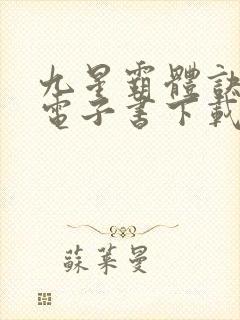 九星霸體訣
電子書下載
蘇萊曼